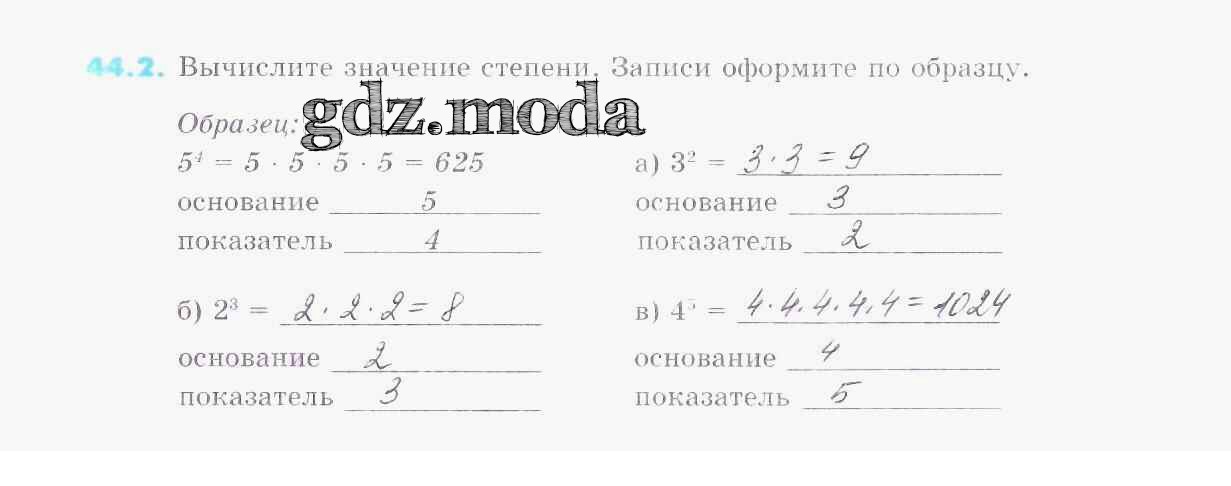 44.2. Вычислите значение степени. Записи оформите по образцу.
Образец:
gdz.moda
5⁴ = 5 · 5 · 5 · 5 = 625
основание 5
показатель 4
а) 3² = 3 · 3 = 9
основание 3
показатель 2
б) 2³ = 2 · 2 · 2 = 8
основание 2
показатель 3
в) 4⁵ = 4 · 4 · 4 · 4 · 4 = 1024
основание 4
показатель 5